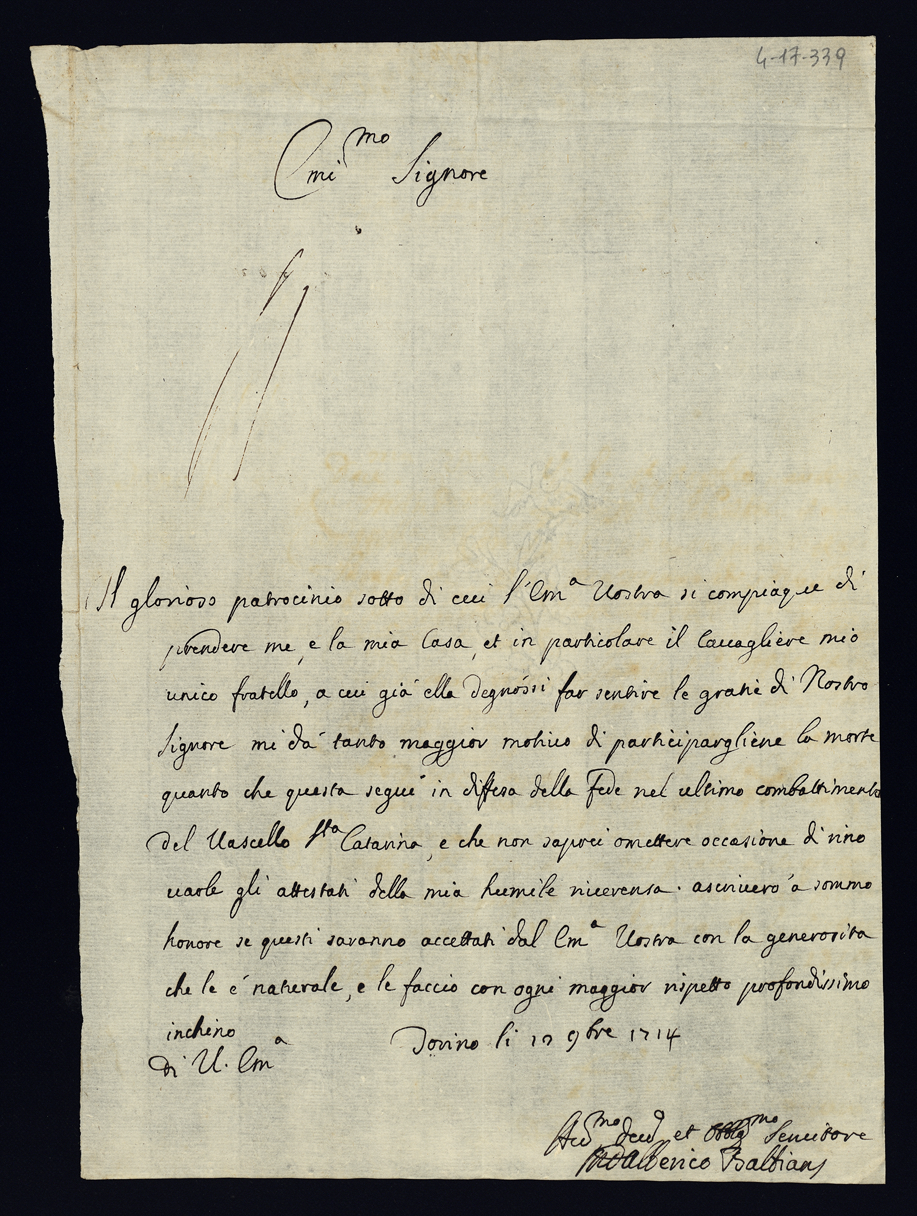 4-17-339
Emi^mo Signore
Il glorioso patrocinio sotto di cui l'Em^a Vostra si compiaque di
prendere me, e la mia Casa, et in particolare il Cavagliere mio
unico fratello, a cui già ella degnóssi far sentire le gratie di Nostro
Signore mi dà tanto maggior motivo di participargliene la morte
quanto che questa seguì in diffesa della fede nel ultimo combattimento
del Vascello S^ta Catarina, e che non saprei omettere occasione di rino
varle gli attestati della mia humile riverenza. ascriverò a sommo
honore se questi saranno accettati dal Em^a Vostra con la generosita
che le é naturale, e le faccio con ogni maggior rispetto profondissimo
inchino
di V. Em^a
Torino li 9bre 1714
et Obblig^mo Servitore
Balbiani